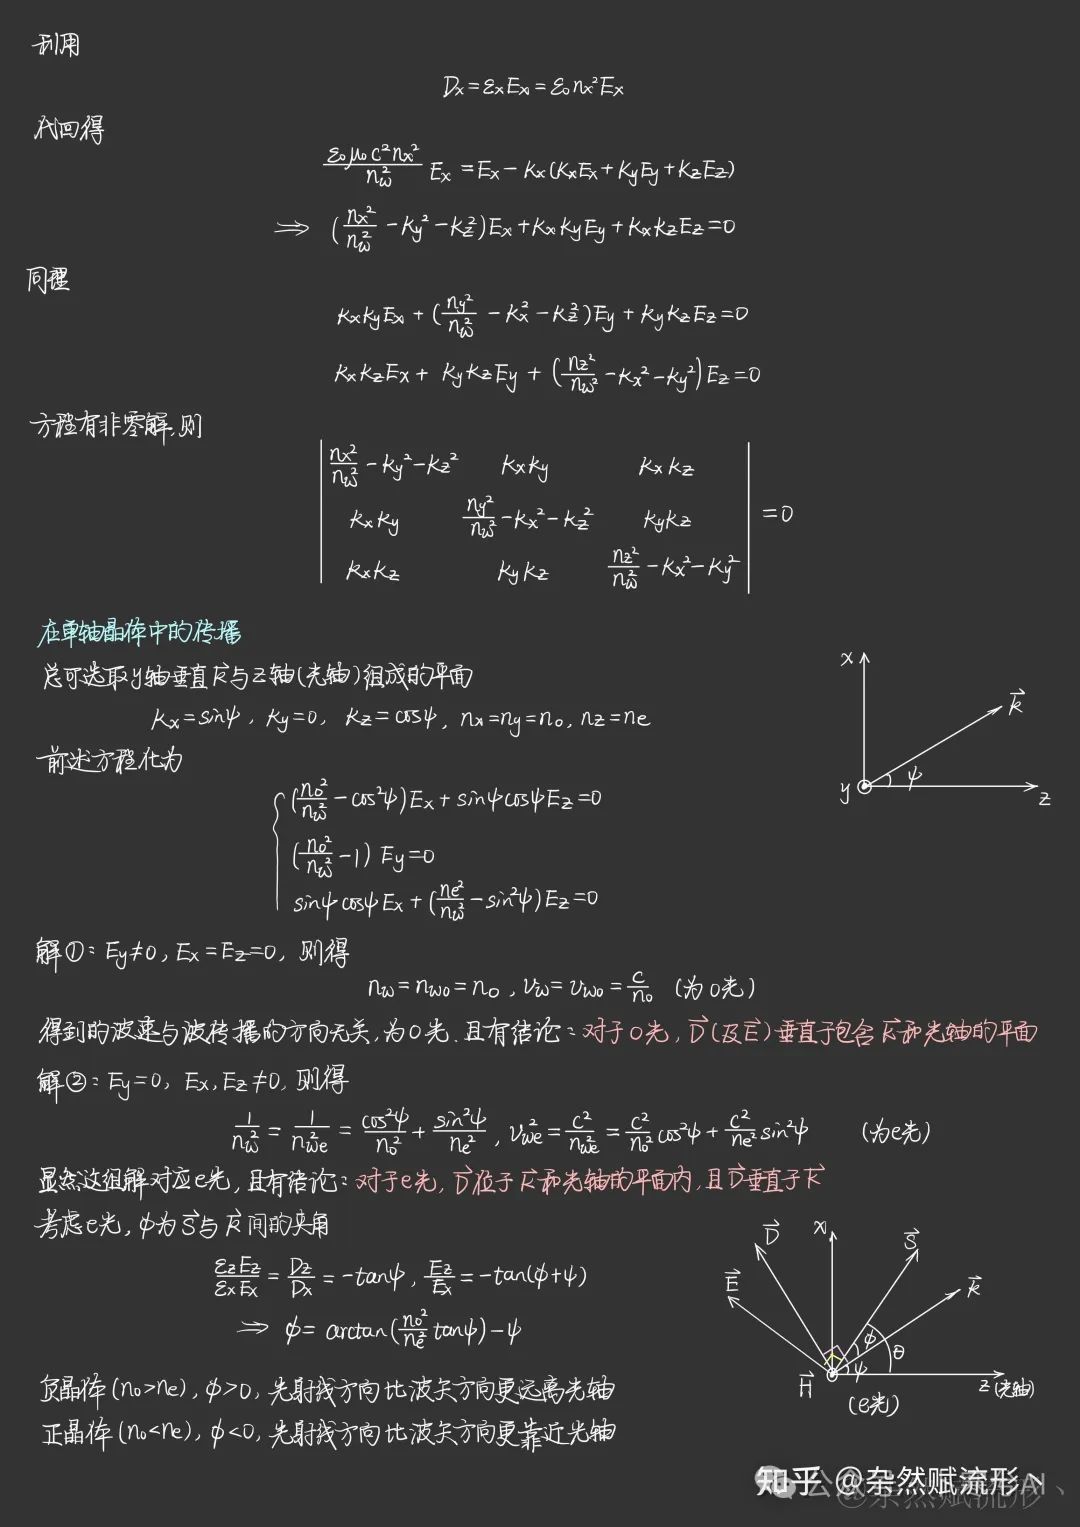 利用
Dx=εxEx=ε₀nx²Ex
代回得
ε₀μ₀c²nx²/nω² Ex=Ex-kx(kxEx+kyEy+kzEz)
⇒ (nx²/nω²-ky²-kz²)Ex+kxkyEy+kxkzEz=0
同理
kxkyEx+(ny²/nω²-kx²-kz²)Ey+kykzEz=0
kxkzEx+kykzEy+(nz²/nω²-kx²-ky²)Ez=0
方程有非零解,则
|nx²/nω²-ky²-kz² kxky kxkz|
|kxky ny²/nω²-kx²-kz² kykz| =0
|kxkz kykz nz²/nω²-kx²-ky²|
在单轴晶体中的传播
总可选取y轴垂直k⃗与z轴(光轴)组成的平面
kx=sinψ, ky=0, kz=cosψ, nx=ny=no, nz=ne
x k⃗ ψ y z
前述方程化为
(no²/nω²-cos²ψ)Ex+sinψcosψEz=0
(no²/nω²-1)Ey=0
sinψcosψEx+(ne²/nω²-sin²ψ)Ez=0
解①: Ey≠0, Ex=Ez=0, 则得
nω=nωo=no, vω=vωo=c/no (为o光)
得到的波速与波传播的方向无关,为o光.且有结论:对于o光,D⃗(及E⃗)垂直于包含k⃗和光轴的平面
解②: Ey=0, Ex,Ez≠0,则得
1/nω²=1/nωe²=cos²ψ/no²+sin²ψ/ne², vωe²=c²/nωe²=c²/no² cos²ψ+c²/ne² sin²ψ (为e光)
显然这组解对应e光,且有结论:对于e光,D⃗位于k⃗和光轴的平面内,且D⃗垂直于k⃗
考虑e光,φ为S⃗与k⃗间的夹角
εzEz/εxEx=Dz/Dx=-tanψ, Ez/Ex=-tan(φ+ψ)
⇒ φ=arctan(no²/ne² tanψ)-ψ
D⃗ x S⃗
E⃗ k⃗
φ θ ψ
H⃗ z(光轴)
(e光)
负晶体(no>ne), φ>0, 光射线方向比波矢方向更远离光轴
正晶体(no<ne), φ<0, 光射线方向比波矢方向更靠近光轴
知乎 @杂然赋流形